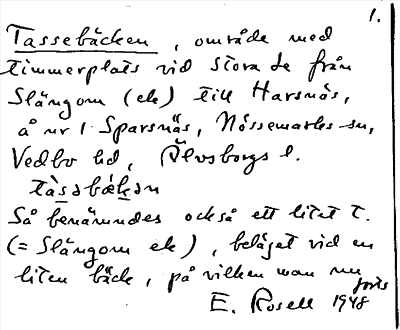 1.
Tassebäcken, område med
timmerplats vid Stora Le från
Slängom (ek) till Harsnäs,
å nr 1 Sparsnäs, Nössemarks sn,
Vedbo hd, Älvsborgs l.
tàsəbækən
Så benämndes också ett litet t.
(= Slängom ek), beläget vid en
liten bäck, på vilken man nu
forts
E. Rosell 1948